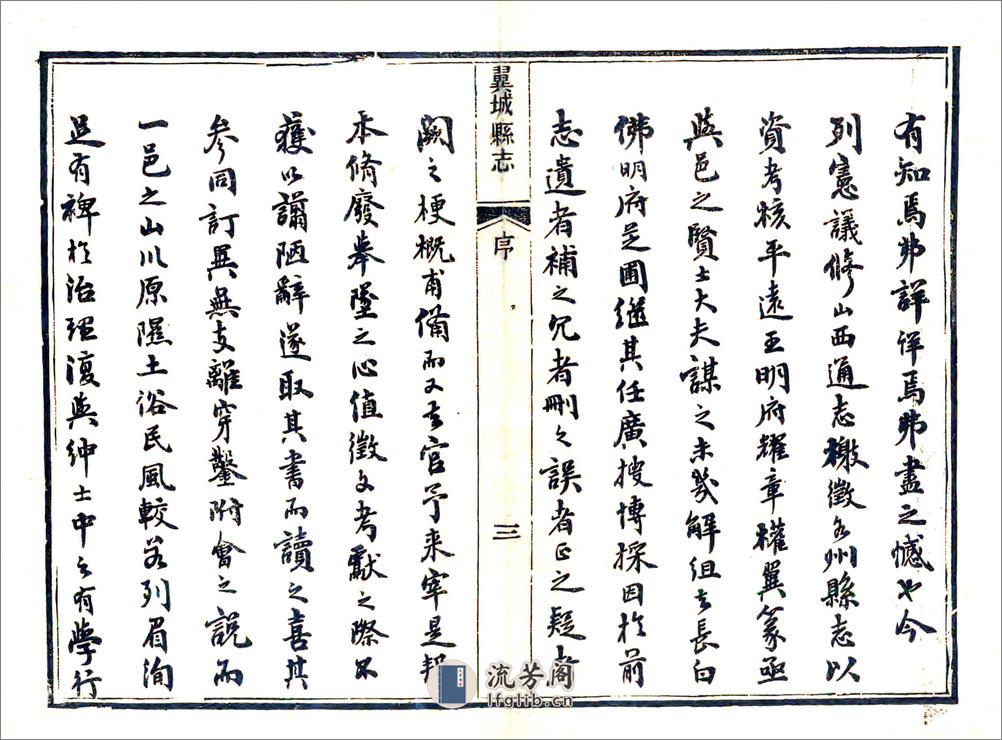 有知焉弗詳詳焉弗盡之憾也今
列憲議修山西通志檄徵各州縣志以
資考核平遠王明府耀章權翼篆亟
與邑之賢士大夫謀之未幾解組去長白
佛明府芝圃繼其任廣搜博採因於前
志遺者補之冗者刪之誤者正之疑者
翼城縣志
序
三
闕之梗概甫備而又去官予来宰是邦
本修廢舉墜之心值徵文考獻之際不
獲以謭陋辭遂取其書而讀之喜其
參同訂異無支離穿鑿附會之說而
一邑之山川原隰土俗民風較若列眉洵
足有裨於治理復與紳士中之有學行
流芳阁
lfglib.cn